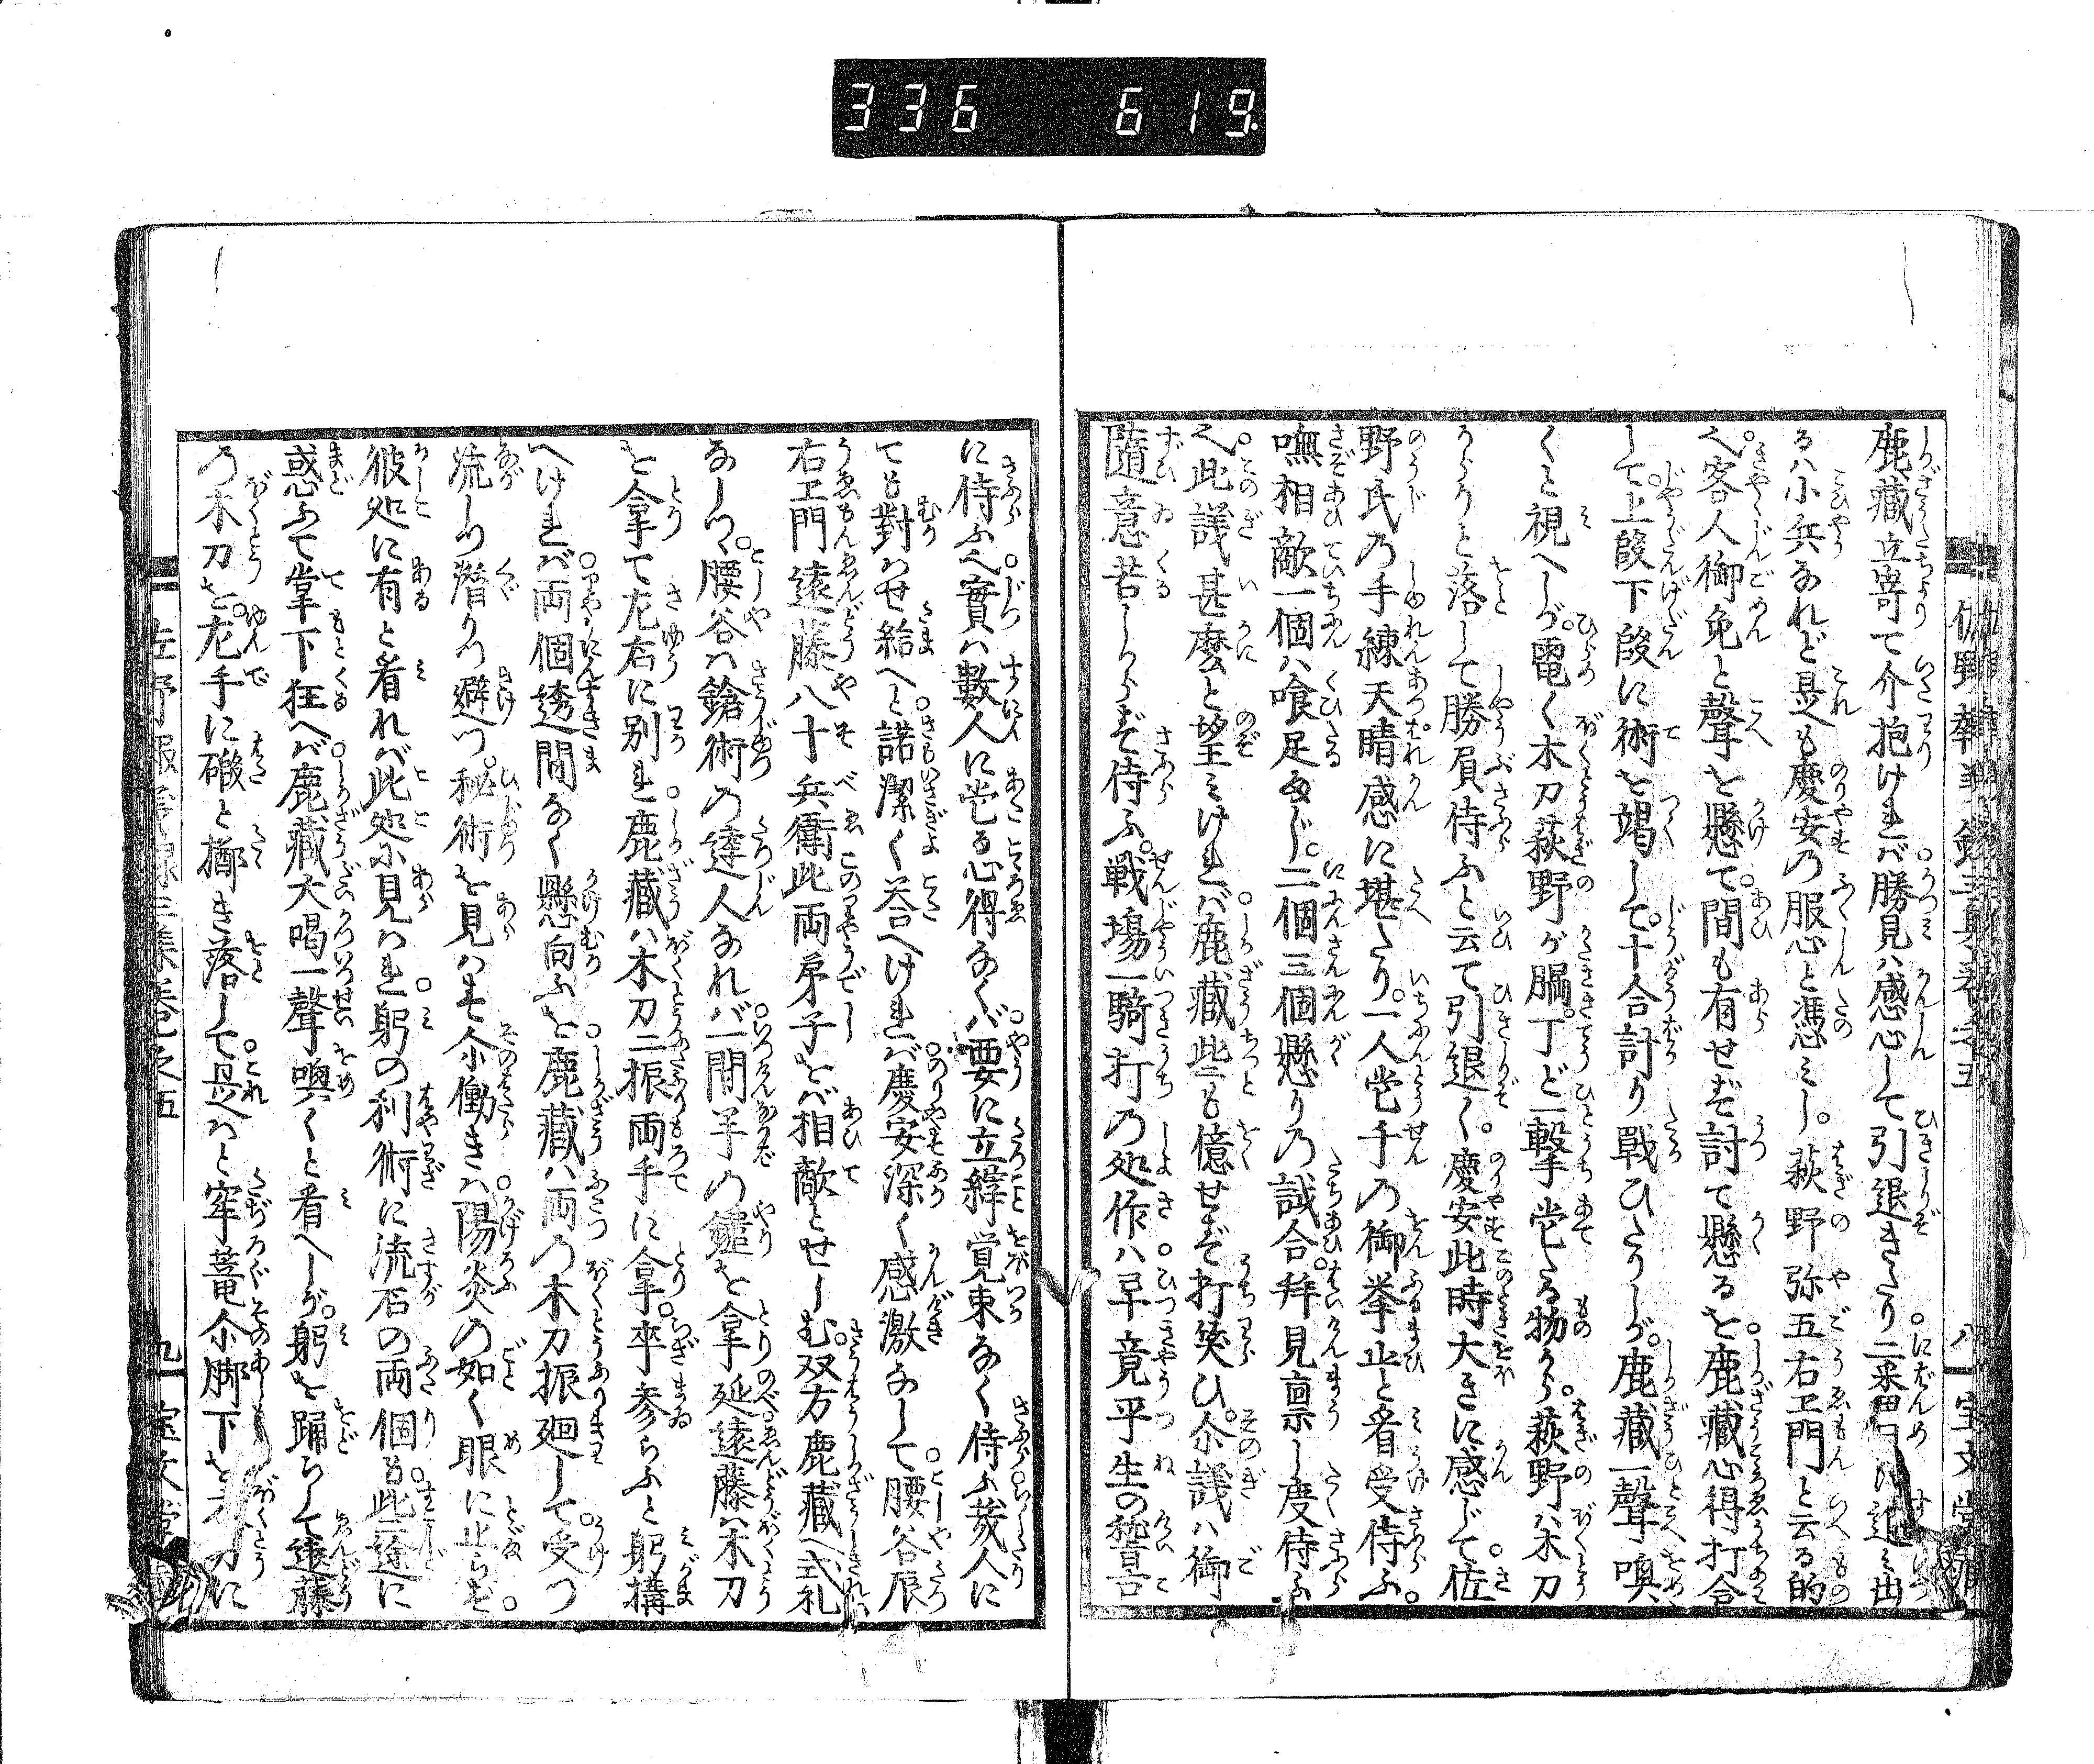 336 619
鹿藏立寄て介抱けれバ勝見ハ感心して引退きたり二番目ハ進ミ出
るハ小兵なれど是も慶安の服心と憑ミし。萩野弥五右エ門と云る的
也客人御免と聲を懸て。間も有せず討て懸るを鹿藏心得打合
して。上段下段に術を竭して。十合計り戰ひたりしが。鹿藏一聲嗅
くと視へしが。電く木刀萩野が腸。丁ど一撃当たる物から。萩野ハ木刀
からりと落して勝負侍ふと云て引退く。慶安此時大きに感じて佐
野氏の手練天晴感に堪たり。一人当千の御挙止と看受侍ふ。
嘸相敵一個ハ喰足まじ。二個三個懸りの試合。拜見禀し度侍ふ
也此議甚麼と望ミけれバ鹿藏些も億せず打笑ひ。尒議ハ御
隨意苦しからず侍ふ。戰塲一騎打の処作ハ早竟平生の稽古
八 宝文堂
に侍ふ也實ハ數人に当る心得なくバ要に立緯覚束なく侍ふ幾人に
ても對はせ給へと諾潔く荅へけれバ慶安深く感激なして腰谷辰
右エ門遠藤八十兵衛此両弟子をバ相敵とせしむ。双方鹿藏へ式礼
なしつ。腰谷は鎗術の達人なれバ一間半の鑓を拿延遠藤ハ木刀
を拿て左右に別れ鹿藏ハ木刀二振両手に拿。卒参らふと躬構
へけれバ両個透間なく懸向ふを鹿藏ハ両の木刀振廻して。受つ
流しつ潜りつ避つ。秘術を見ハす尒働きハ陽炎の如く眼に止らず。
彼処に有と看れバ此処ふ見ハれ躬の利術に流石の両個も。此途に
惑ふて掌下狂へバ鹿藏大喝一聲嗅くと看へしが。躬を踊らして遠藤
の木刀を。左手に礑と揤き落して。是ハと牢篭尒脚下を木刀に
佐野報義録三集巻之五 九 宝文堂